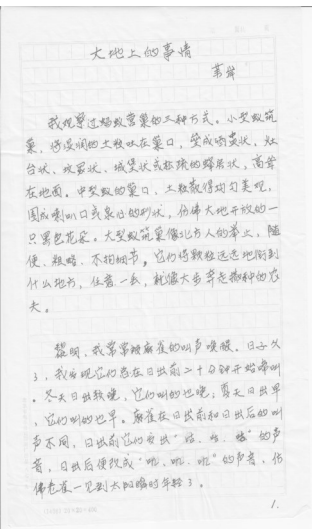 大地上的事情
苇岸
我观察过蚂蚁营巢的三种方式。小型蚁筑
巢，将湿润的土粒吐在巢口，垒成酒盅状、灶
台状、坟冢状、城堡状或松疏的蜂房状，高耸
在地面。中型蚁的巢口，土粒散得均匀美观，
围成喇叭口或泉心的形状，仿佛大地开放的一
只黑色花朵。大型蚁筑巢像北方人的举止，随
便、粗略、不拘细节。它们将颗粒远远地衔到
什么地方，任意一丢，就像大步奔走撒种的农
夫。
黎明，我常常被麻雀的叫声唤醒。日子久
了，我发现它们总在日出前二十分钟开始啼叫
。冬天日出较晚，它们叫的也晚；夏天日出早
，它们叫的也早。麻雀在日出前和日出后的叫
声不同，日出前它们发出“鸟、鸟、鸟”的声
音，日出后便改成“喳、喳、喳”的声音，仿
佛卷雀一见到太阳
1.